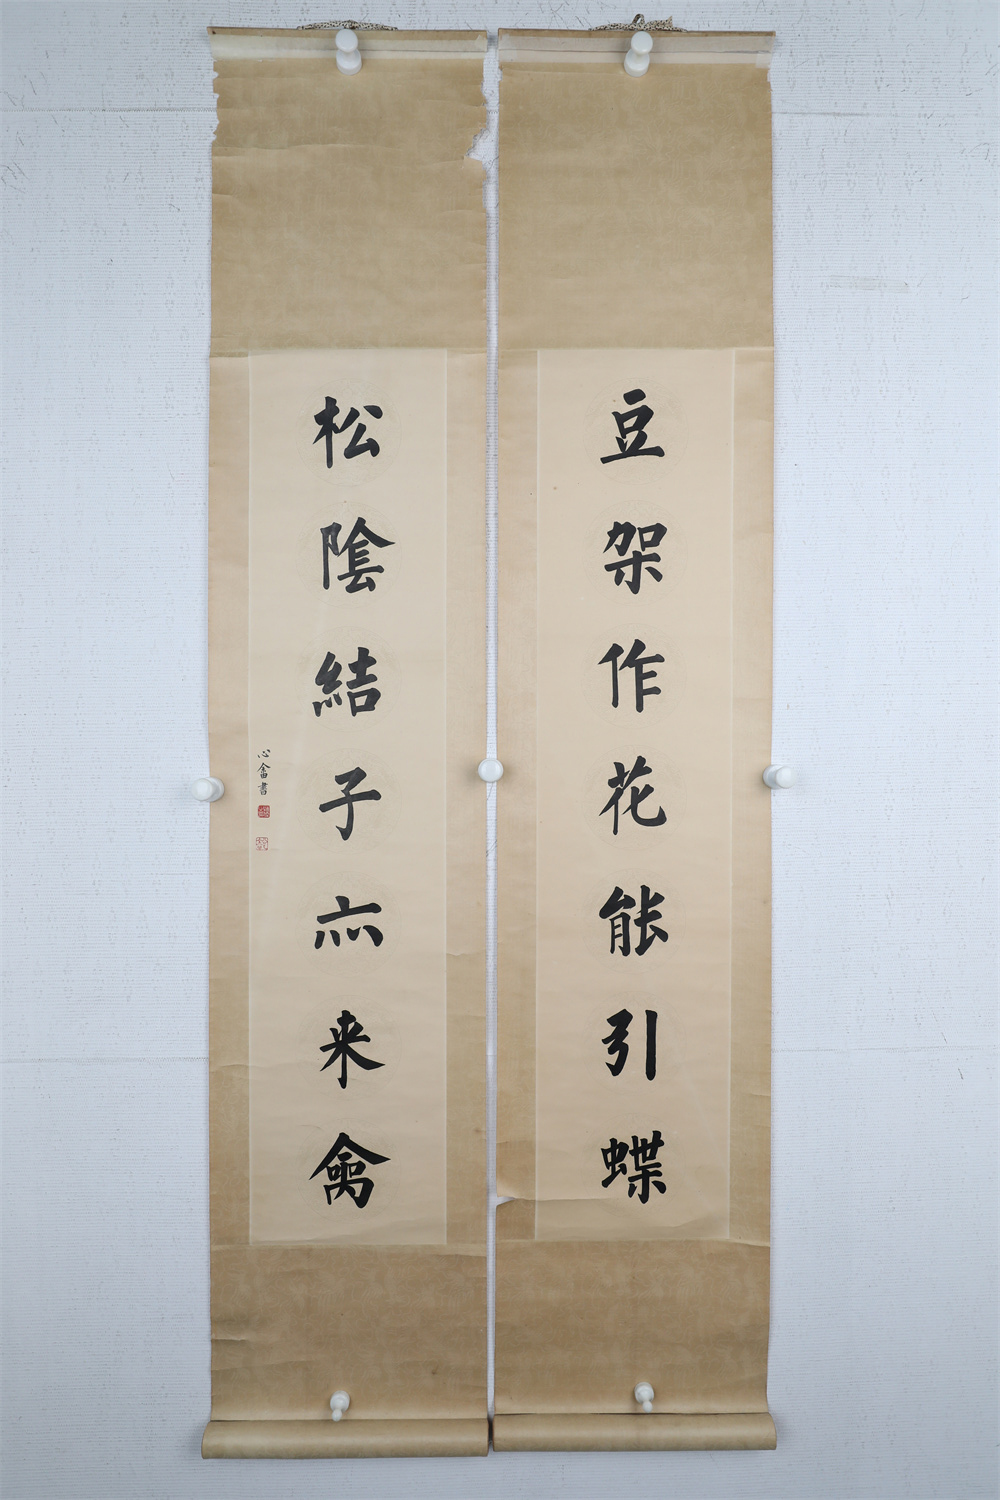 豆架作花能引蝶
松陰結子亦来禽
心畬書